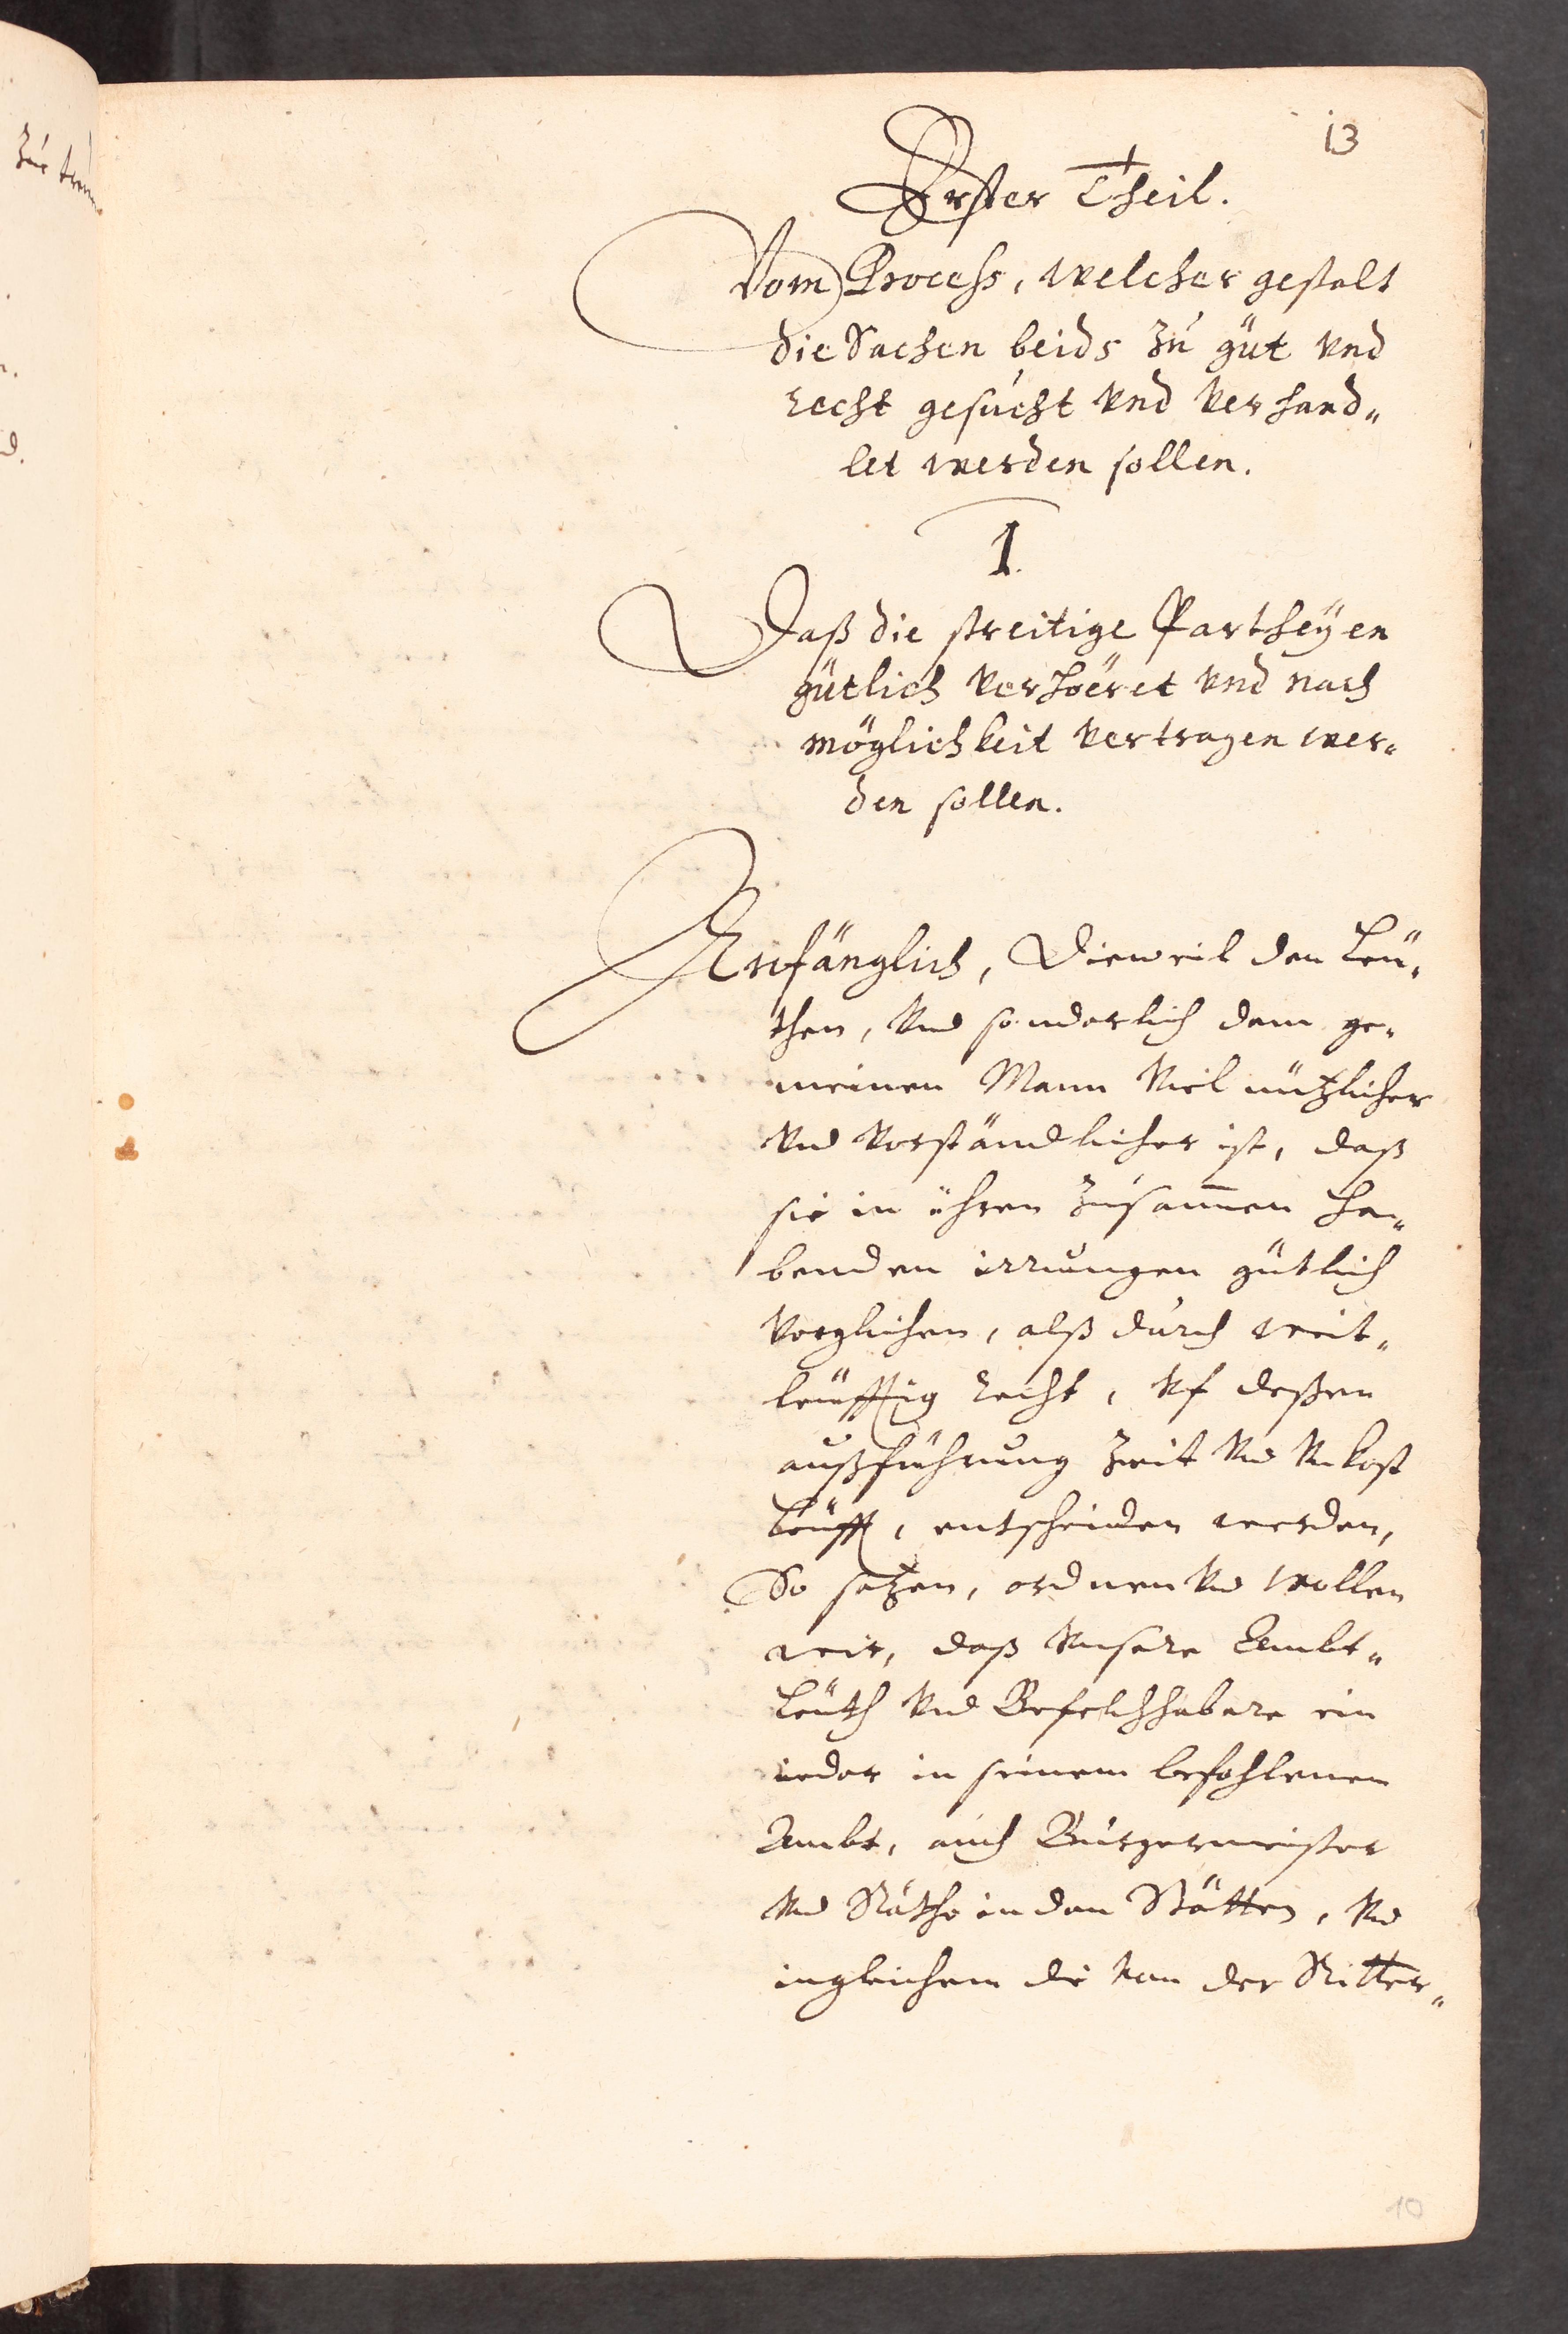 13
Erster Theil.
Vom Process, welcher gestalt
die Sachen beids zu gut vnd
recht gesucht vnd verhand„
let werden sollen.
1.
Daß die streitige Partheÿen
gütlich verhöret vnd nach
möglichkeit vertragen wer„
den sollen.
Anfänglich, Dieweil den Leü„
then, vnd sonderlich dem ge„
meinen Mann viel nützlicher
vnd vorständlicher ist, daß
sie in ihren zusam̄en ha„
benden irrungen gütlich
verglichen, alß durch weit„
leüffig recht, vf deßen
außführung zeit vnd vnkost
leüfft, entscheiden werden,
So setzen, ordnen vnd wollen
wir, daß vnsere Ambt„
leüth vnd Befelchhabere ein
ieder in seinem befohlenen
Ambt, auch Burgermeister
vnd Räthe in den Stätten, vnd
ingleichem die von der Ritter„
10